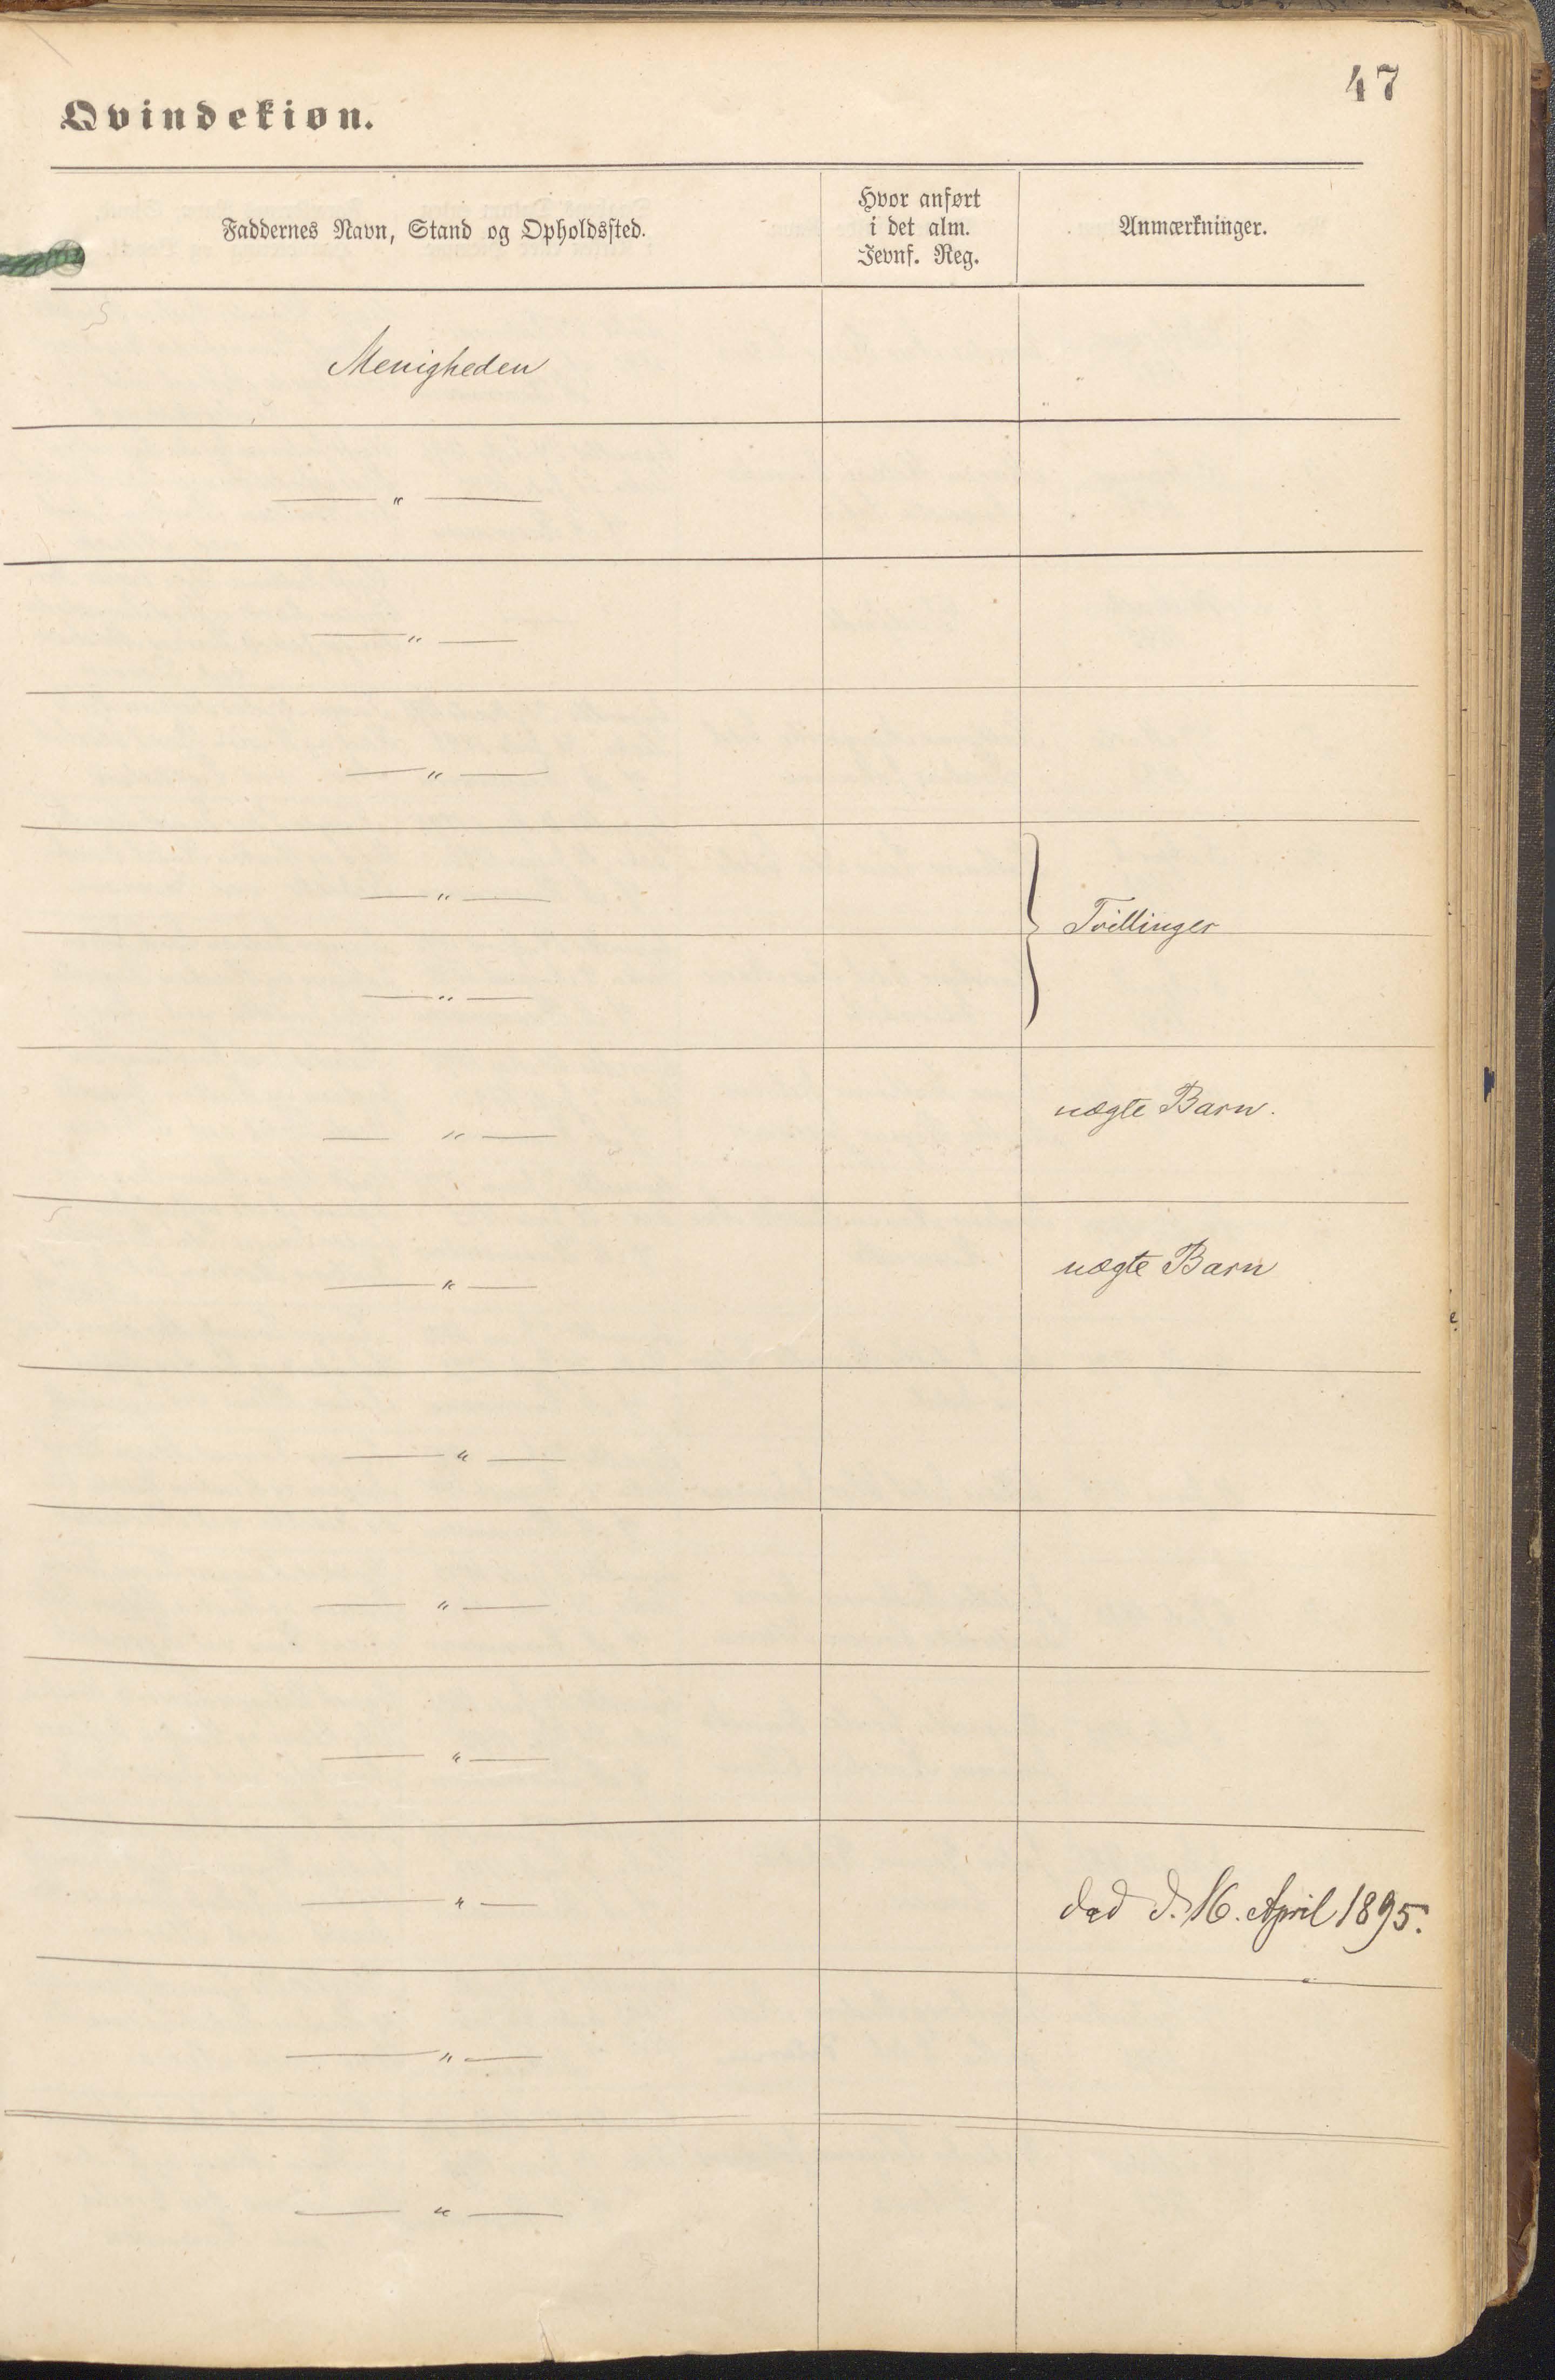 47
Qvindekiøn.
Faddernes Navn, Stand og Opholdssted.
Hvor anført
i det alm.
Jevnf. Reg.
Anmærkninger.
Menigheden
— " —
— " —
— " —
— " —
Tvillinger
— " —
uægte Barn.
— " —
uægte Barn
— " —
— " —
— " —
— " —
død d. 16. April 1895.
— " —
— " —
— " —